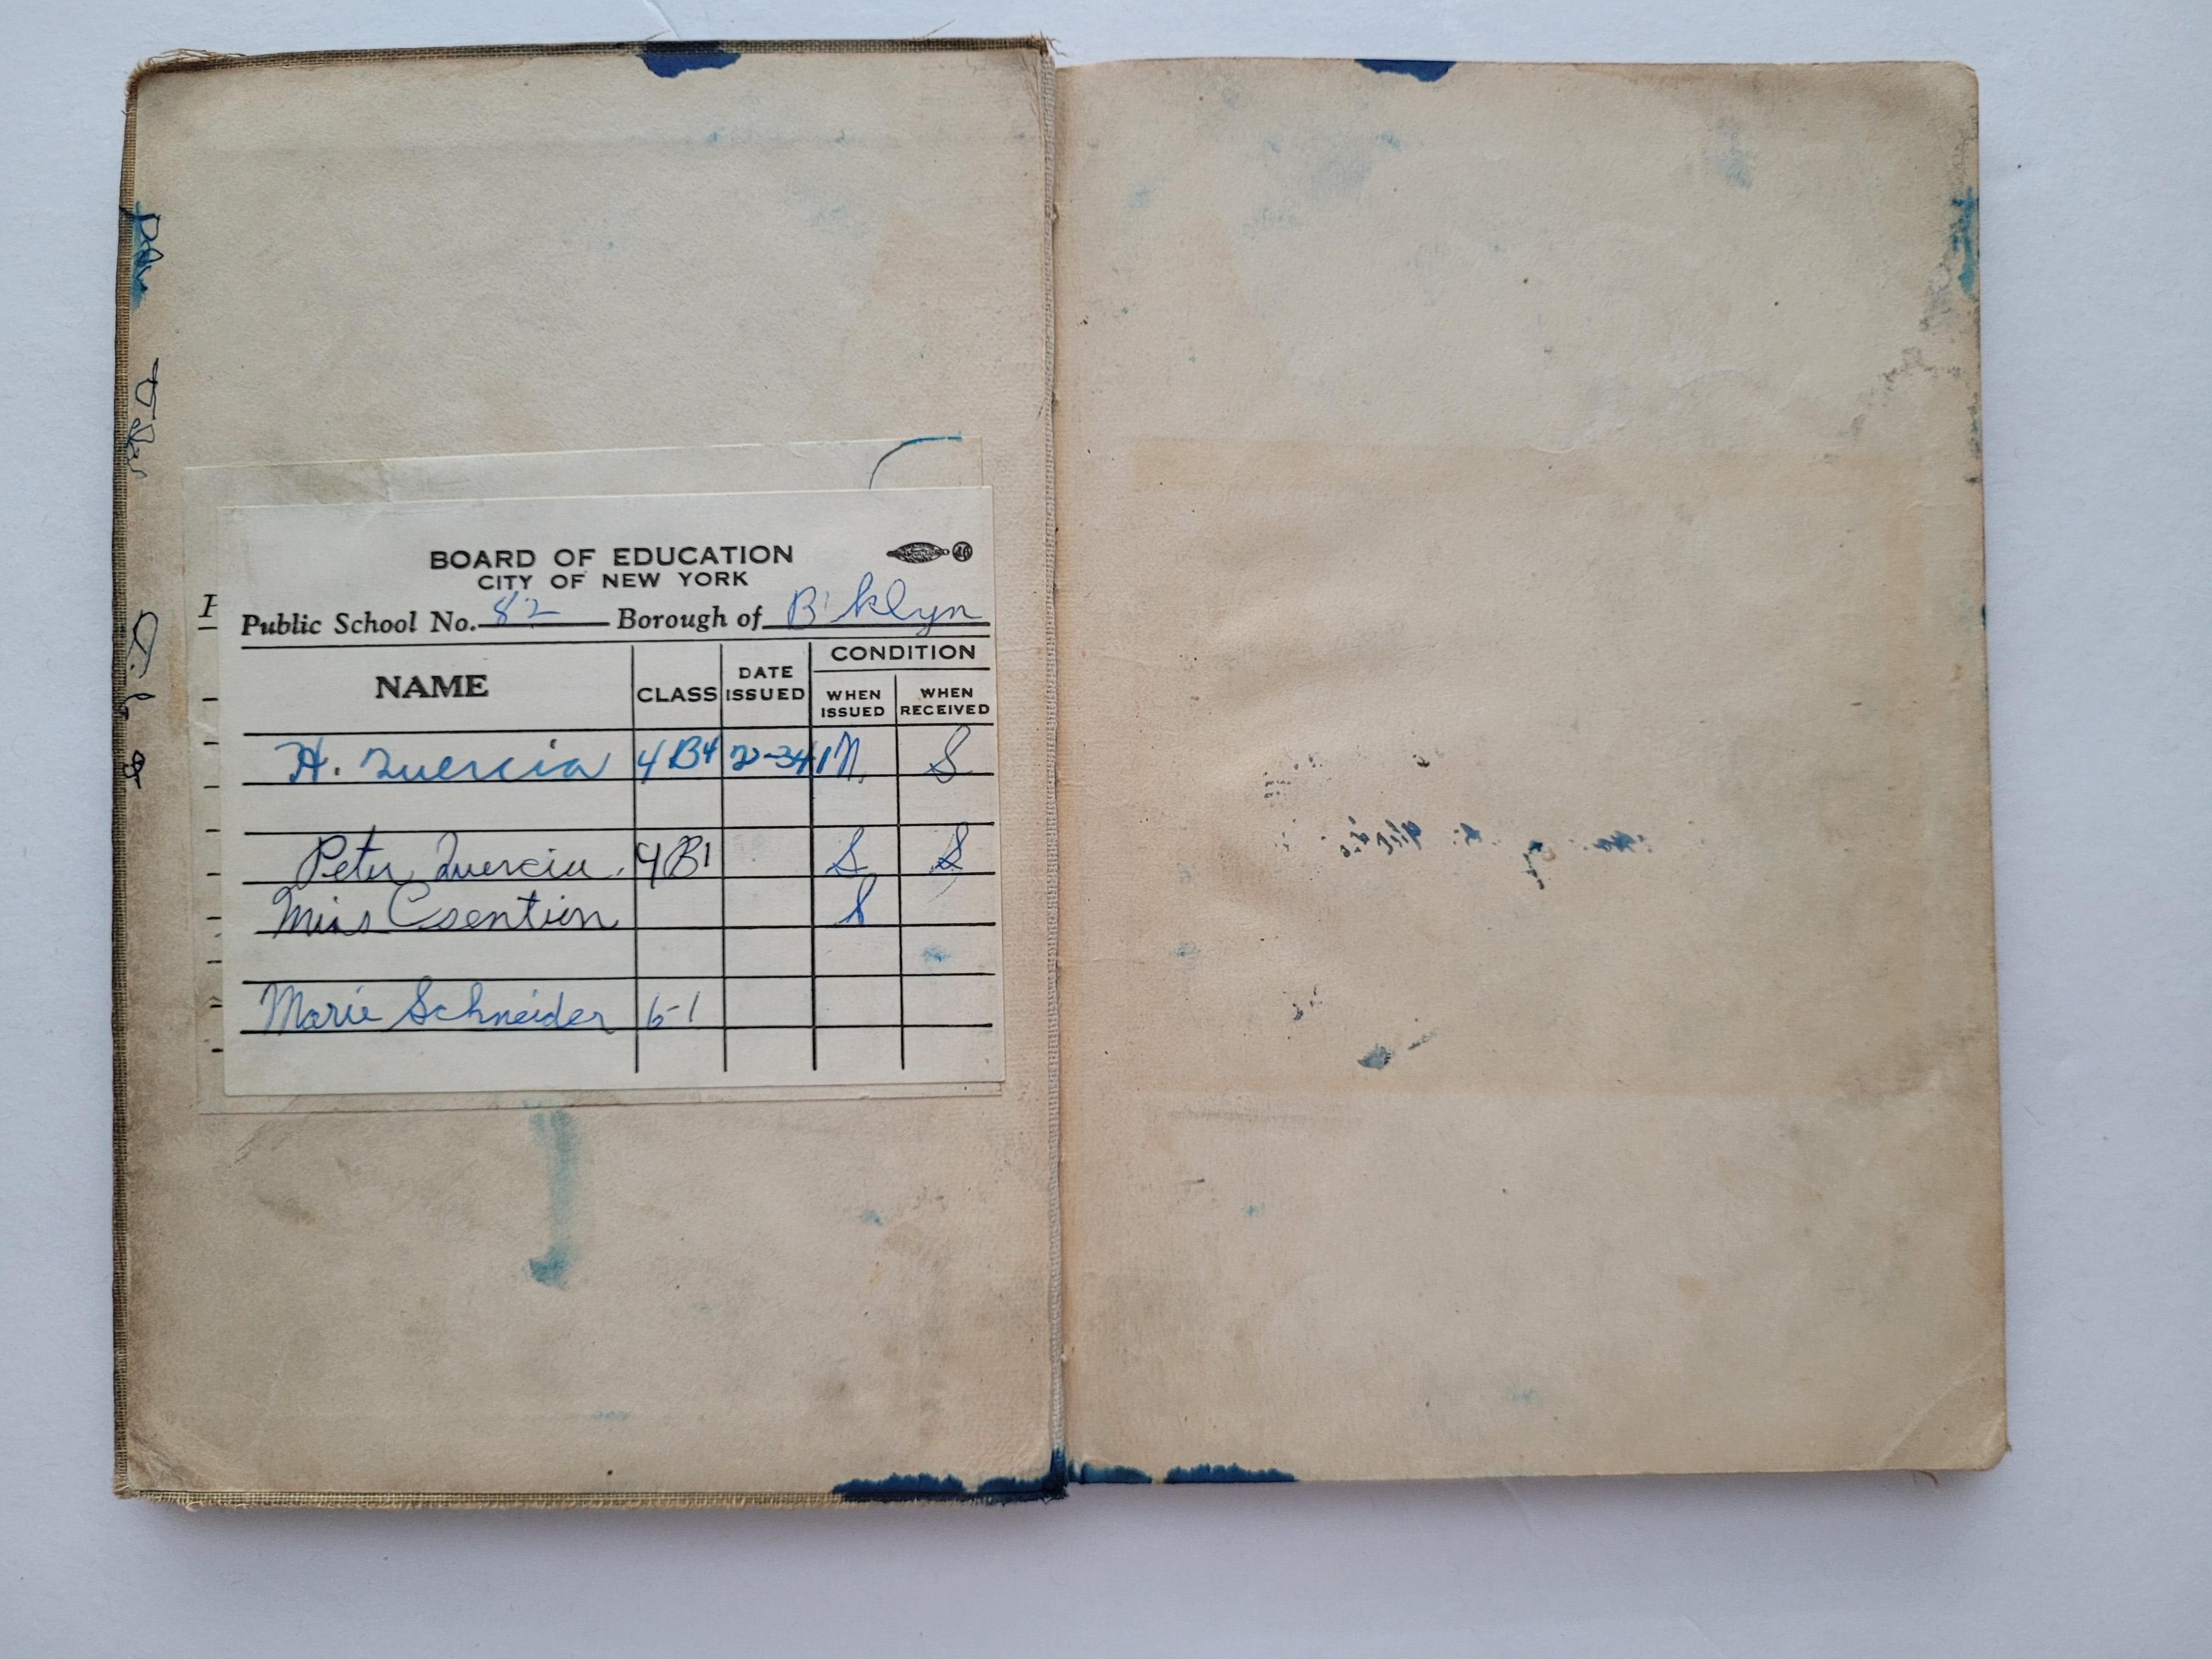 BOARD OF EDUCATION
CITY OF NEW YORK
Public School No. 82 Borough of B'klyn
NAME CLASS DATE ISSUED CONDITION WHEN ISSUED WHEN RECEIVED
H. Quercia 4B4 S
Peter Quercia 4B1 S S
Miss S
Marie Schneider 6-1